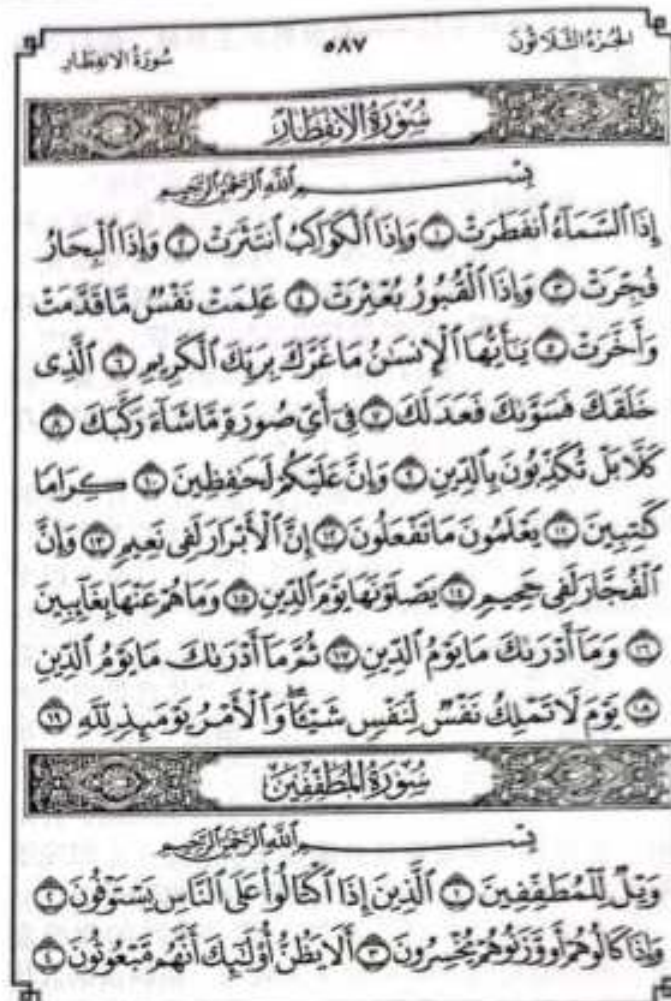 الجزء الثلاثون ٥٨٧ سورة الانفطار
سُورَةُ الِانفِطَارِ
بِسْمِ ٱللَّهِ ٱلرَّحْمَٰنِ ٱلرَّحِيمِ
إِذَا ٱلسَّمَآءُ ٱنفَطَرَتْ ١ وَإِذَا ٱلْكَوَاكِبُ ٱنتَثَرَتْ ٢ وَإِذَا ٱلْبِحَارُ
فُجِّرَتْ ٣ وَإِذَا ٱلْقُبُورُ بُعْثِرَتْ ٤ عَلِمَتْ نَفْسٌ مَّا قَدَّمَتْ
وَأَخَّرَتْ ٥ يَٰٓأَيُّهَا ٱلْإِنسَٰنُ مَا غَرَّكَ بِرَبِّكَ ٱلْكَرِيمِ ٦ ٱلَّذِى
خَلَقَكَ فَسَوَّىٰكَ فَعَدَلَكَ ٧ فِىٓ أَىِّ صُورَةٍ مَّا شَآءَ رَكَّبَكَ ٨
كَلَّا بَلْ تُكَذِّبُونَ بِٱلدِّينِ ٩ وَإِنَّ عَلَيْكُمْ لَحَٰفِظِينَ ١٠ كِرَامًا
كَٰتِبِينَ ١١ يَعْلَمُونَ مَا تَفْعَلُونَ ١٢ إِنَّ ٱلْأَبْرَارَ لَفِى نَعِيمٍ ١٣ وَإِنَّ
ٱلْفُجَّارَ لَفِى جَحِيمٍ ١٤ يَصْلَوْنَهَا يَوْمَ ٱلدِّينِ ١٥ وَمَا هُمْ عَنْهَا بِغَآئِبِينَ
١٦ وَمَآ أَدْرَىٰكَ مَا يَوْمُ ٱلدِّينِ ١٧ ثُمَّ مَآ أَدْرَىٰكَ مَا يَوْمُ ٱلدِّينِ
١٨ يَوْمَ لَا تَمْلِكُ نَفْسٌ لِّنَفْسٍ شَيْـًٔا ۖ وَٱلْأَمْرُ يَوْمَئِذٍ لِّلَّهِ ١٩
سُورَةُ المُطَفِّفِينَ
بِسْمِ ٱللَّهِ ٱلرَّحْمَٰنِ ٱلرَّحِيمِ
وَيْلٌ لِّلْمُطَفِّفِينَ ١ ٱلَّذِينَ إِذَا ٱكْتَالُوا۟ عَلَى ٱلنَّاسِ يَسْتَوْفُونَ ٢
وَإِذَا كَالُوهُمْ أَو وَّزَنُوهُمْ يُخْسِرُونَ ٣ أَلَا يَظُنُّ أُو۟لَٰٓئِكَ أَنَّهُم مَّبْعُوثُونَ ٤